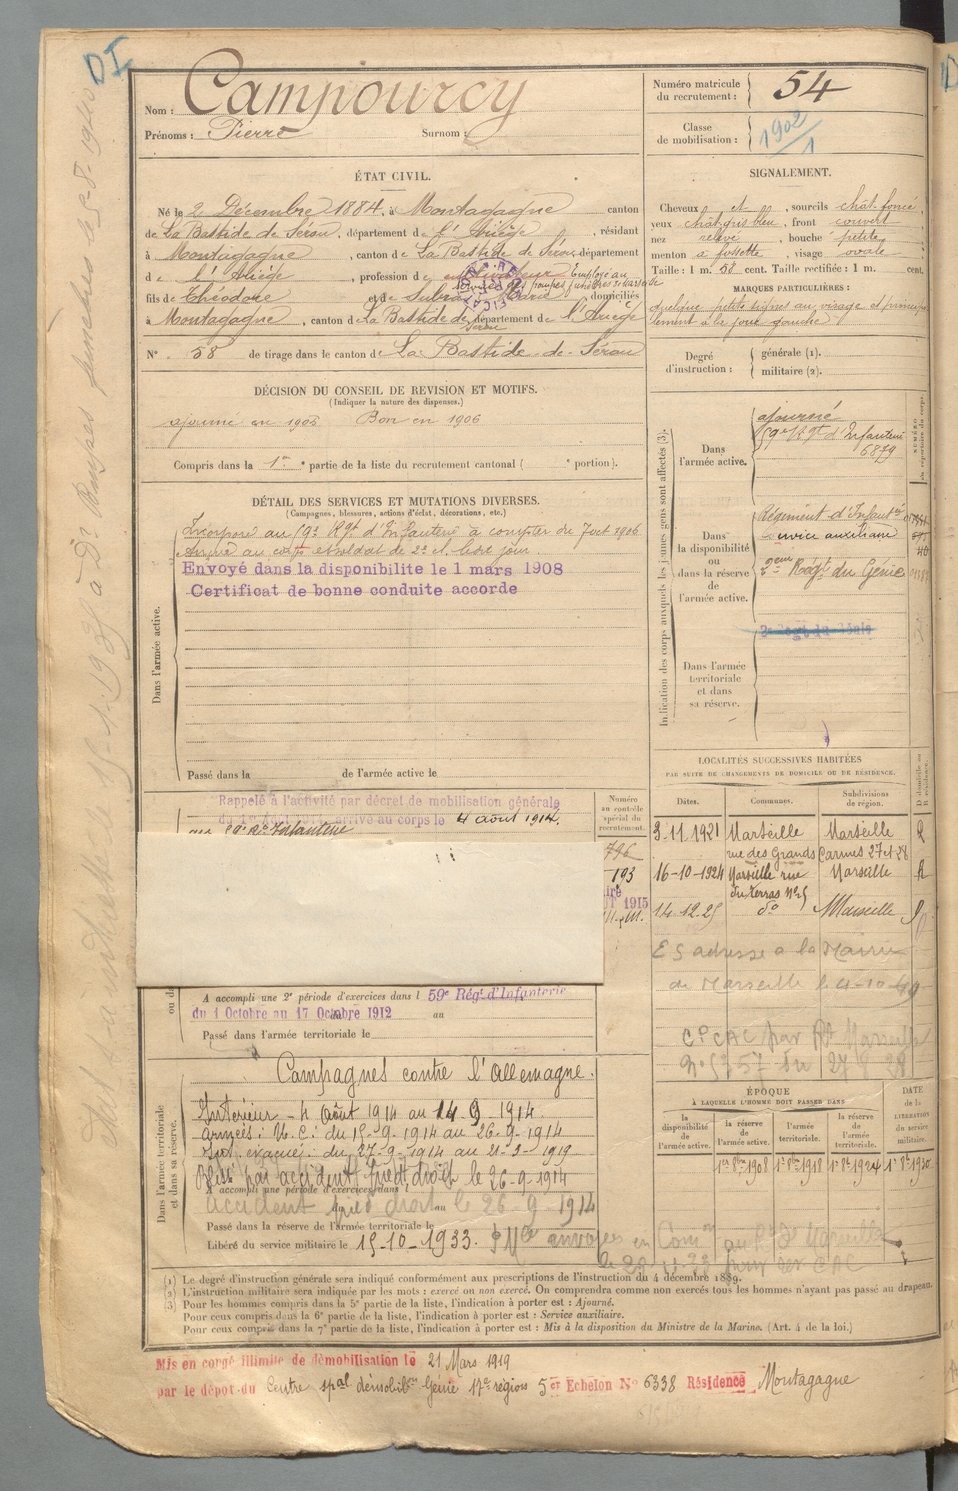 DI
Nom : Campourcy
Prénoms : Pierre Surnom :
Numéro matricule du recrutement : 54
Classe de mobilisation : 1902/1
ÉTAT CIVIL.
Né le 2 Décembre 1884, à Montagagne canton
de La Bastide de Sérou, département de l'Ariège, résidant
à Montagagne, canton de La Bastide de Sérou département
d e l'Ariège, profession de cultivateur Employé au
fils de Théodore et de domiciliés
à Montagagne, canton de La Bastide de Serou département de l'Ariège
N° 58 de tirage dans le canton de La Bastide de Sérou
SIGNALEMENT.
Cheveux et, sourcils chât. foncé
yeux chât. gris bleu, front couvert
nez relevé, bouche petite
menton à fossette, visage ovale
Taille : 1 m. 58 cent. Taille rectifiée : 1 m. cent.
MARQUES PARTICULIÈRES :
quelque petits signes au visage et
à la joue gauche
Degré d'instruction : générale (1).
militaire (2).
DÉCISION DU CONSEIL DE REVISION ET MOTIFS.
(Indiquer la nature des dispenses.)
ajourné en 1905 Bon en 1906
Compris dans la 1re partie de la liste du recrutement cantonal ( e portion).
DÉTAIL DES SERVICES ET MUTATIONS DIVERSES.
(Campagnes, blessures, actions d'éclat, décorations, etc.)
Incorporé au 59e Rgt d'Infanterie à compter du 7 oct 1906
Arrivé au corps et soldat de 2e cl. le dit jour.
Envoyé dans la disponibilite le 1 mars 1908
Certificat de bonne conduite accorde
Dans l'armée active.
Passé dans la de l'armée active le
Indication des corps auxquels les jeunes gens sont affectés (3).
NUMÉRO du répertoire du corps.
Dans l'armée active.
ajourné
59e Rgt d'Infanterie
6879
Dans la disponibilité ou dans la réserve de l'armée active.
Régiment d'Infanterie
service auxiliaire
2eme Régt du Génie
Dans l'armée territoriale et dans sa réserve.
Rappelé à l'activité par décret de mobilisation générale
arrivé au corps le 4 août 1914.
au 59e Rt Infanterie
Numéro au contrôle spécial du recrutement.
796
193
1915
LOCALITÉS SUCCESSIVES HABITÉES
PAR SUITE DE CHANGEMENTS DE DOMICILE OU DE RÉSIDENCE.
Dates. Communes. Subdivisions de région. D domicile ou R résidence.
3-11-1921 Marseille Marseille R
rue des Grands Carmes 27 et 28
16-10-1924 Marseille rue Marseille R
du terras N° 5
14-12-25 do Marseille
adresse a la Mairie
de Marseille le 4-10-
CP CAC par Rt Marseille
ou da
A accompli une 2e période d'exercices dans l 59e Régt d'Infanterie
du 1 Octobre au 17 Octobre 1912 au
Passé dans l'armée territoriale le
Dans l'armée territoriale et dans sa réserve.
Campagnes contre l'Allemagne.
Intérieur - 4 Août 1914 au 14-9-1914.
Armées : N.E : du 15-9-1914 au 26-9-1914
Int. évacué. du 27-9-1914 au 21-3-1919
Blessé par accident pied droit le 26-9-1914
A accompli une période d'exercices dans l
accident pied droit le 26-9-1914
au
Passé dans la réserve de l'armée territoriale le
Libéré du service militaire le 15-10-1933.
ÉPOQUE
À LAQUELLE L'HOMME DOIT PASSER DANS
la disponibilité de l'armée active. la réserve de l'armée active. l'armée territoriale. la réserve de l'armée territoriale.
DATE de la LIBÉRATION du service militaire.
1er 8bre 1908 1er 8bre 1918 1er 8bre 1924 1er 8bre 1930
(1) Le degré d'instruction générale sera indiqué conformément aux prescriptions de l'instruction du 4 décembre 1889.
(2) L'instruction militaire sera indiquée par les mots : exercé ou non exercé. On comprendra comme non exercés tous les hommes n'ayant pas passé au drapeau.
(3) Pour les hommes compris dans la 5e partie de la liste, l'indication à porter est : Ajourné.
Pour ceux compris dans la 6e partie de la liste, l'indication à porter est : Service auxiliaire.
Pour ceux compris dans la 7e partie de la liste, l'indication à porter est : Mis à la disposition du Ministre de la Marine. (Art. 4 de la loi.)
Mis en congé illimité de démobilisation le 21 Mars 1919
par le dépot du Centre spal démobilon Génie 17e région 5er Echelon N° 6338 Résidence Montagagne